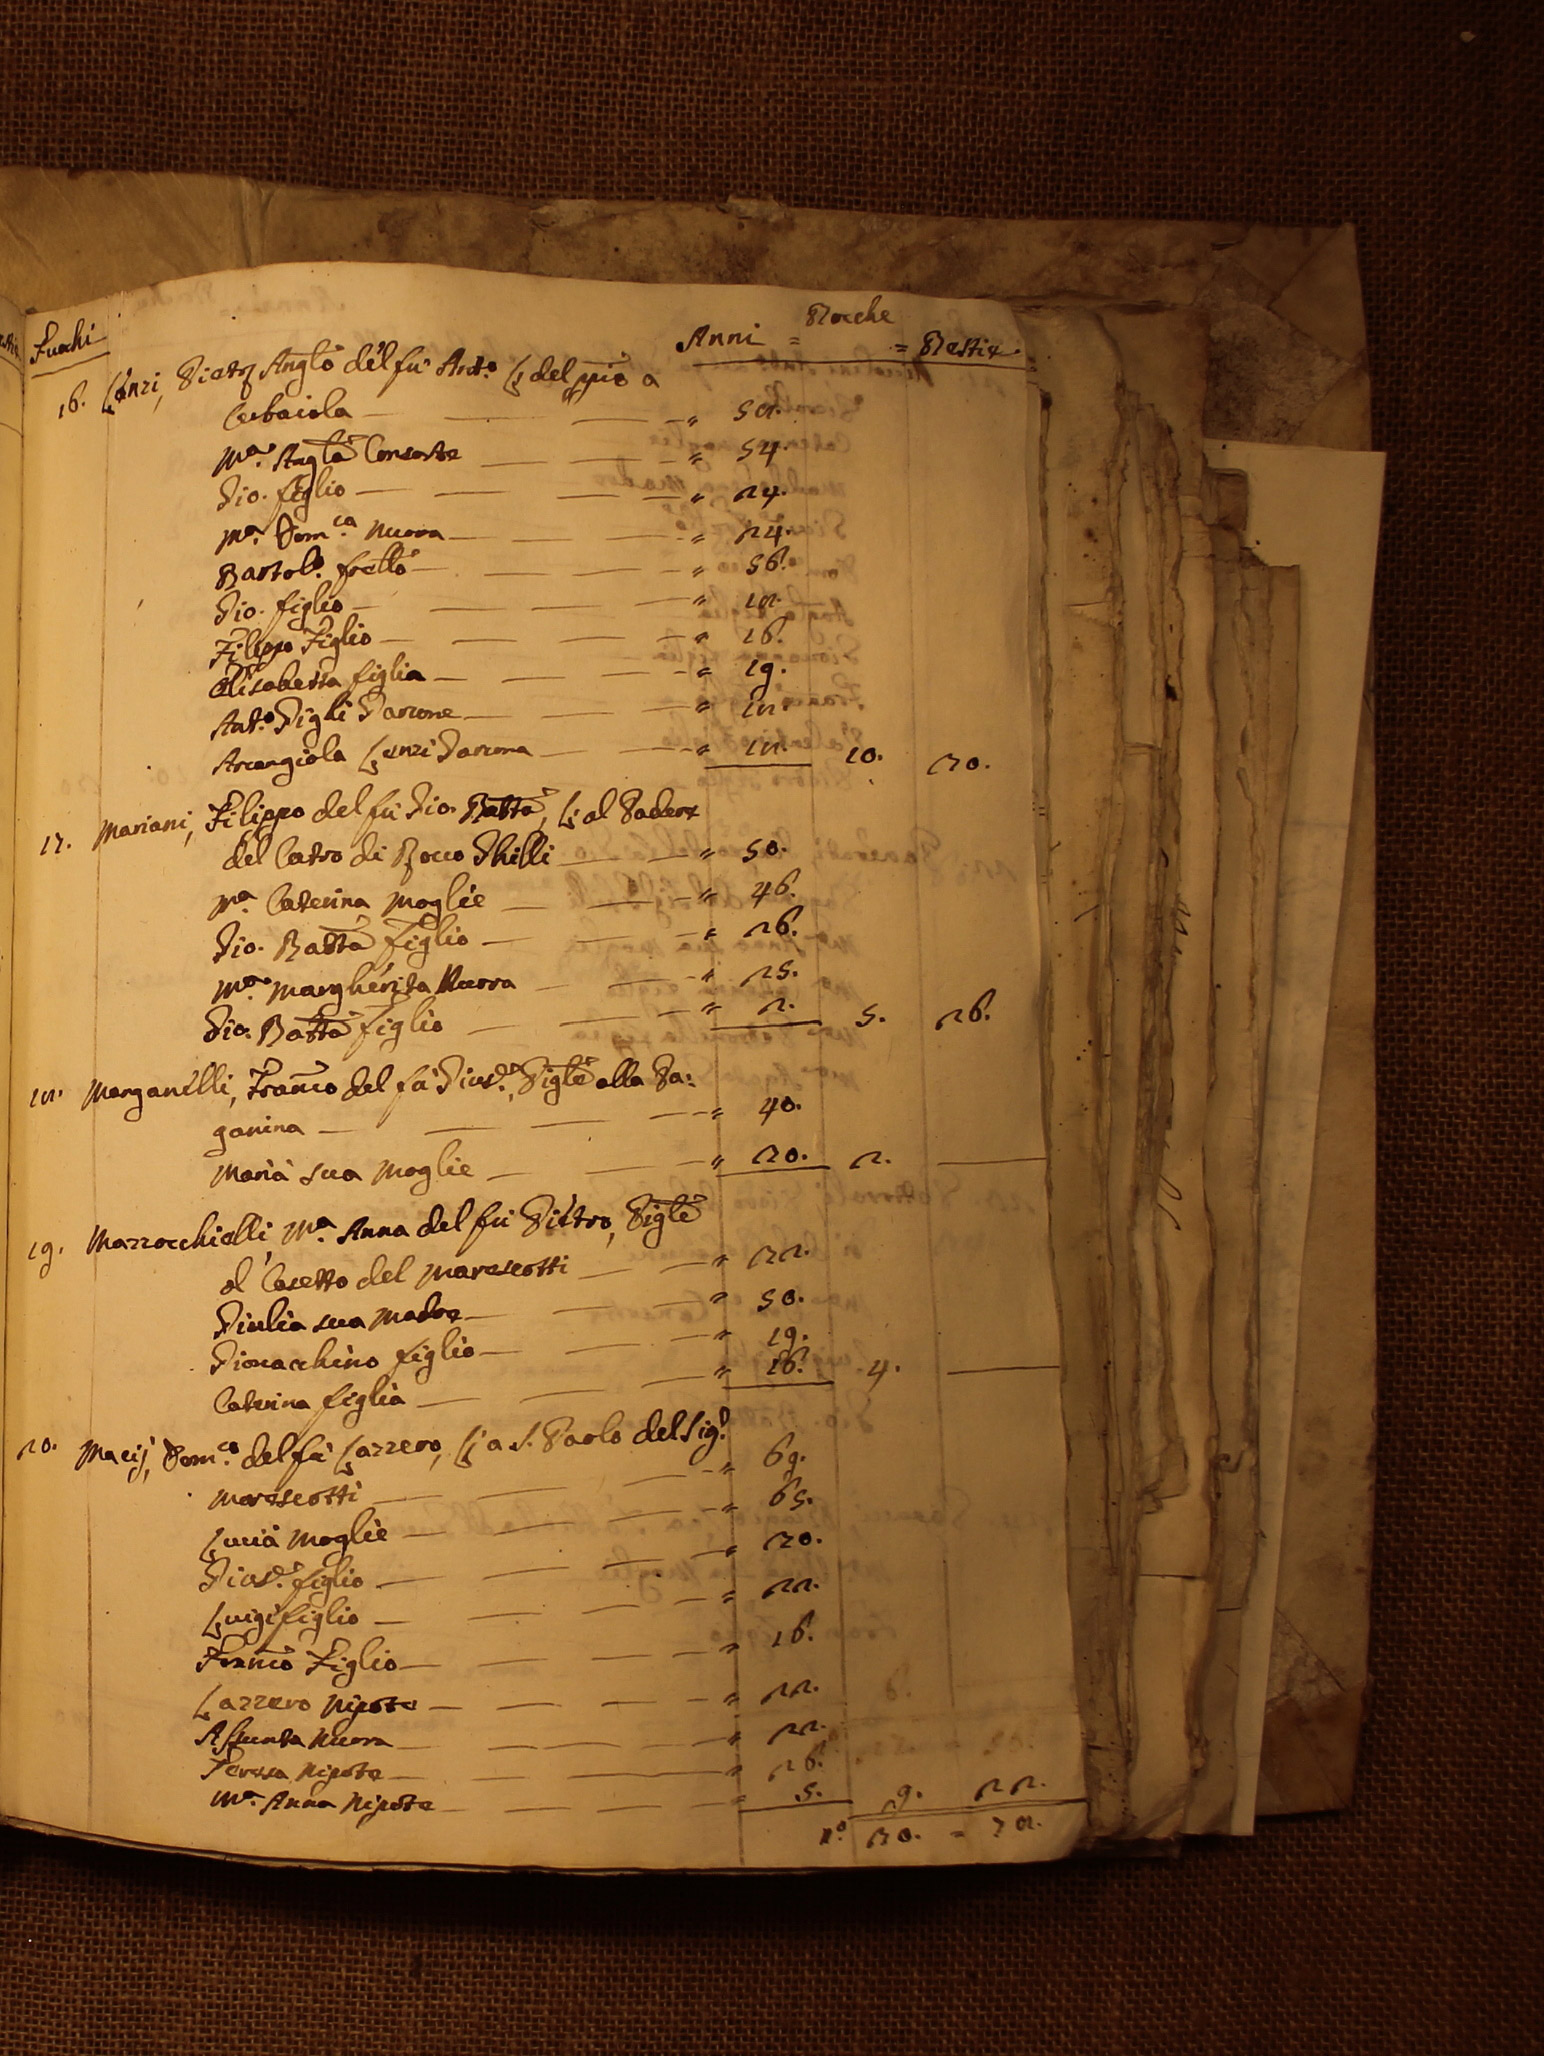 Fuochi
Anni = Bocche = Bestie
16. Lenzi, Pietro Anglo del fu Anto. L: del prio a
Cerbaiola — " 58.
Ma. Angla Consorte — " 54.
Gio. figlio — " 24.
Ma. Domca. Nuora — " 24.
Bartolo. fratello — " 56.
Gio. figlio — " 18.
Filippo Figlio — " 16.
Elisabetta figlia — " 19.
Anto. Gigli Garzone — " 18.
Arcangiola Lenzi Garzona — " 18. 10. 30.
17. Mariani, Filippo del fu Gio. Batta, L: al Podere
del Catro di Rocco Ghilli — " 50.
Ma. Caterina Moglie — " 46.
Gio. Batta Figlio — " 26.
Ma. Margherita Nuora — " 25.
Gio. Batta figlio — " 2. 5. 26.
18. Morganelli, Franco del fu Giuse., Pigle alla Pa:
ganina — " 40.
Maria sua Moglie — " 30. 2. —
19. Mazzocchielli, Ma. Anna del fu Pietro, Pigle
al Casetto del Marescotti — " 22.
Giulia sua Madre — " 50.
Gionacchino figlio — " 19.
Caterina figlia — " 16. 4. —
20. Macij, Domco. del fu Lazzero, L: a S. Paolo del Sigr.
Marescotti — " 69.
Lucia Moglie — " 65.
Giuse. figlio — " 30.
Luigi figlio — " 22.
Franco Figlio — " 16.
Lazzero Nipote — " 22.
Assunta Nuora — " 22.
Teresa Nipote — " 26.
Ma. Anna Nipote — " 5. 9. 22.
No. 30. = 78.